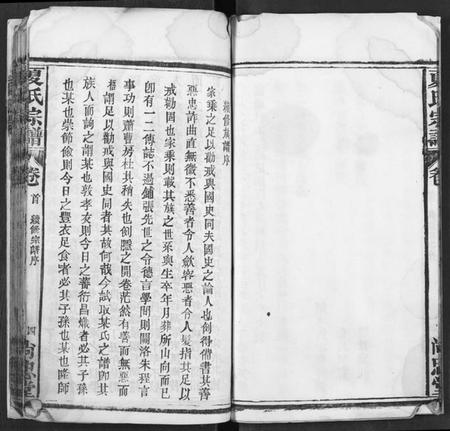 續修族譜序
家乘之足以勸戒與國史同夫國史之論人也例得備書其善
惡忠詐曲直無微不悉善者令人歛容惡者令人髮指其足以
戒勸固也家乘則載其族之世系與生卒年月葬所山向而已
卽有一二傳誌不過鋪張先世之令德言學問則關洛朱程言
事功則蕭曹房杜其稍失也劍隱之開卷茫然有善而無惡而
謂足以勸戒與國史同者其故何哉今試取某氏之譜卽其
族人而詢之謂某也敦孝友則今日之蕃衍昌熾者必其子孫
也某也崇節儉則今日之豐衣足食者必其子孫也某也隆師
夏氏宗譜
卷首
續修宗譜序
四
尚忠堂
夏氏宗譜
卷
尚忠堂